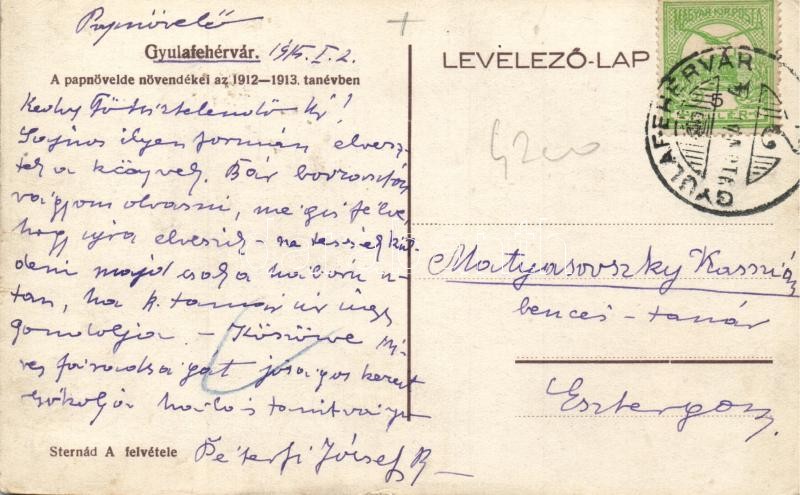 Papnövelő
Gyulafehérvár. 1915. I. 2.
A papnövelde növendékei az 1912—1913. tanévben
Kedves Főtisztelendő Úr!
Sajnos ilyen formán elvesz-
tek a könyvek. Bár borzasztón
vágyom olvasni, mégis félve,
hogy újra elveszik – ne tessék kül-
deni majd csak a háború u-
tan, ha k. tanár úr úgy
gondolja. – Köszönve szi-
ves fáradságát jóságos kezeit
csókolja hálás tanítványa
Péterfi József
Sternád A felvétele
LEVELEZŐ-LAP
MAGYAR KIR. POSTA
GYULAFEHÉRVÁR
4200
Matyasovszky Kasszián
bencés-tanár
Esztergom